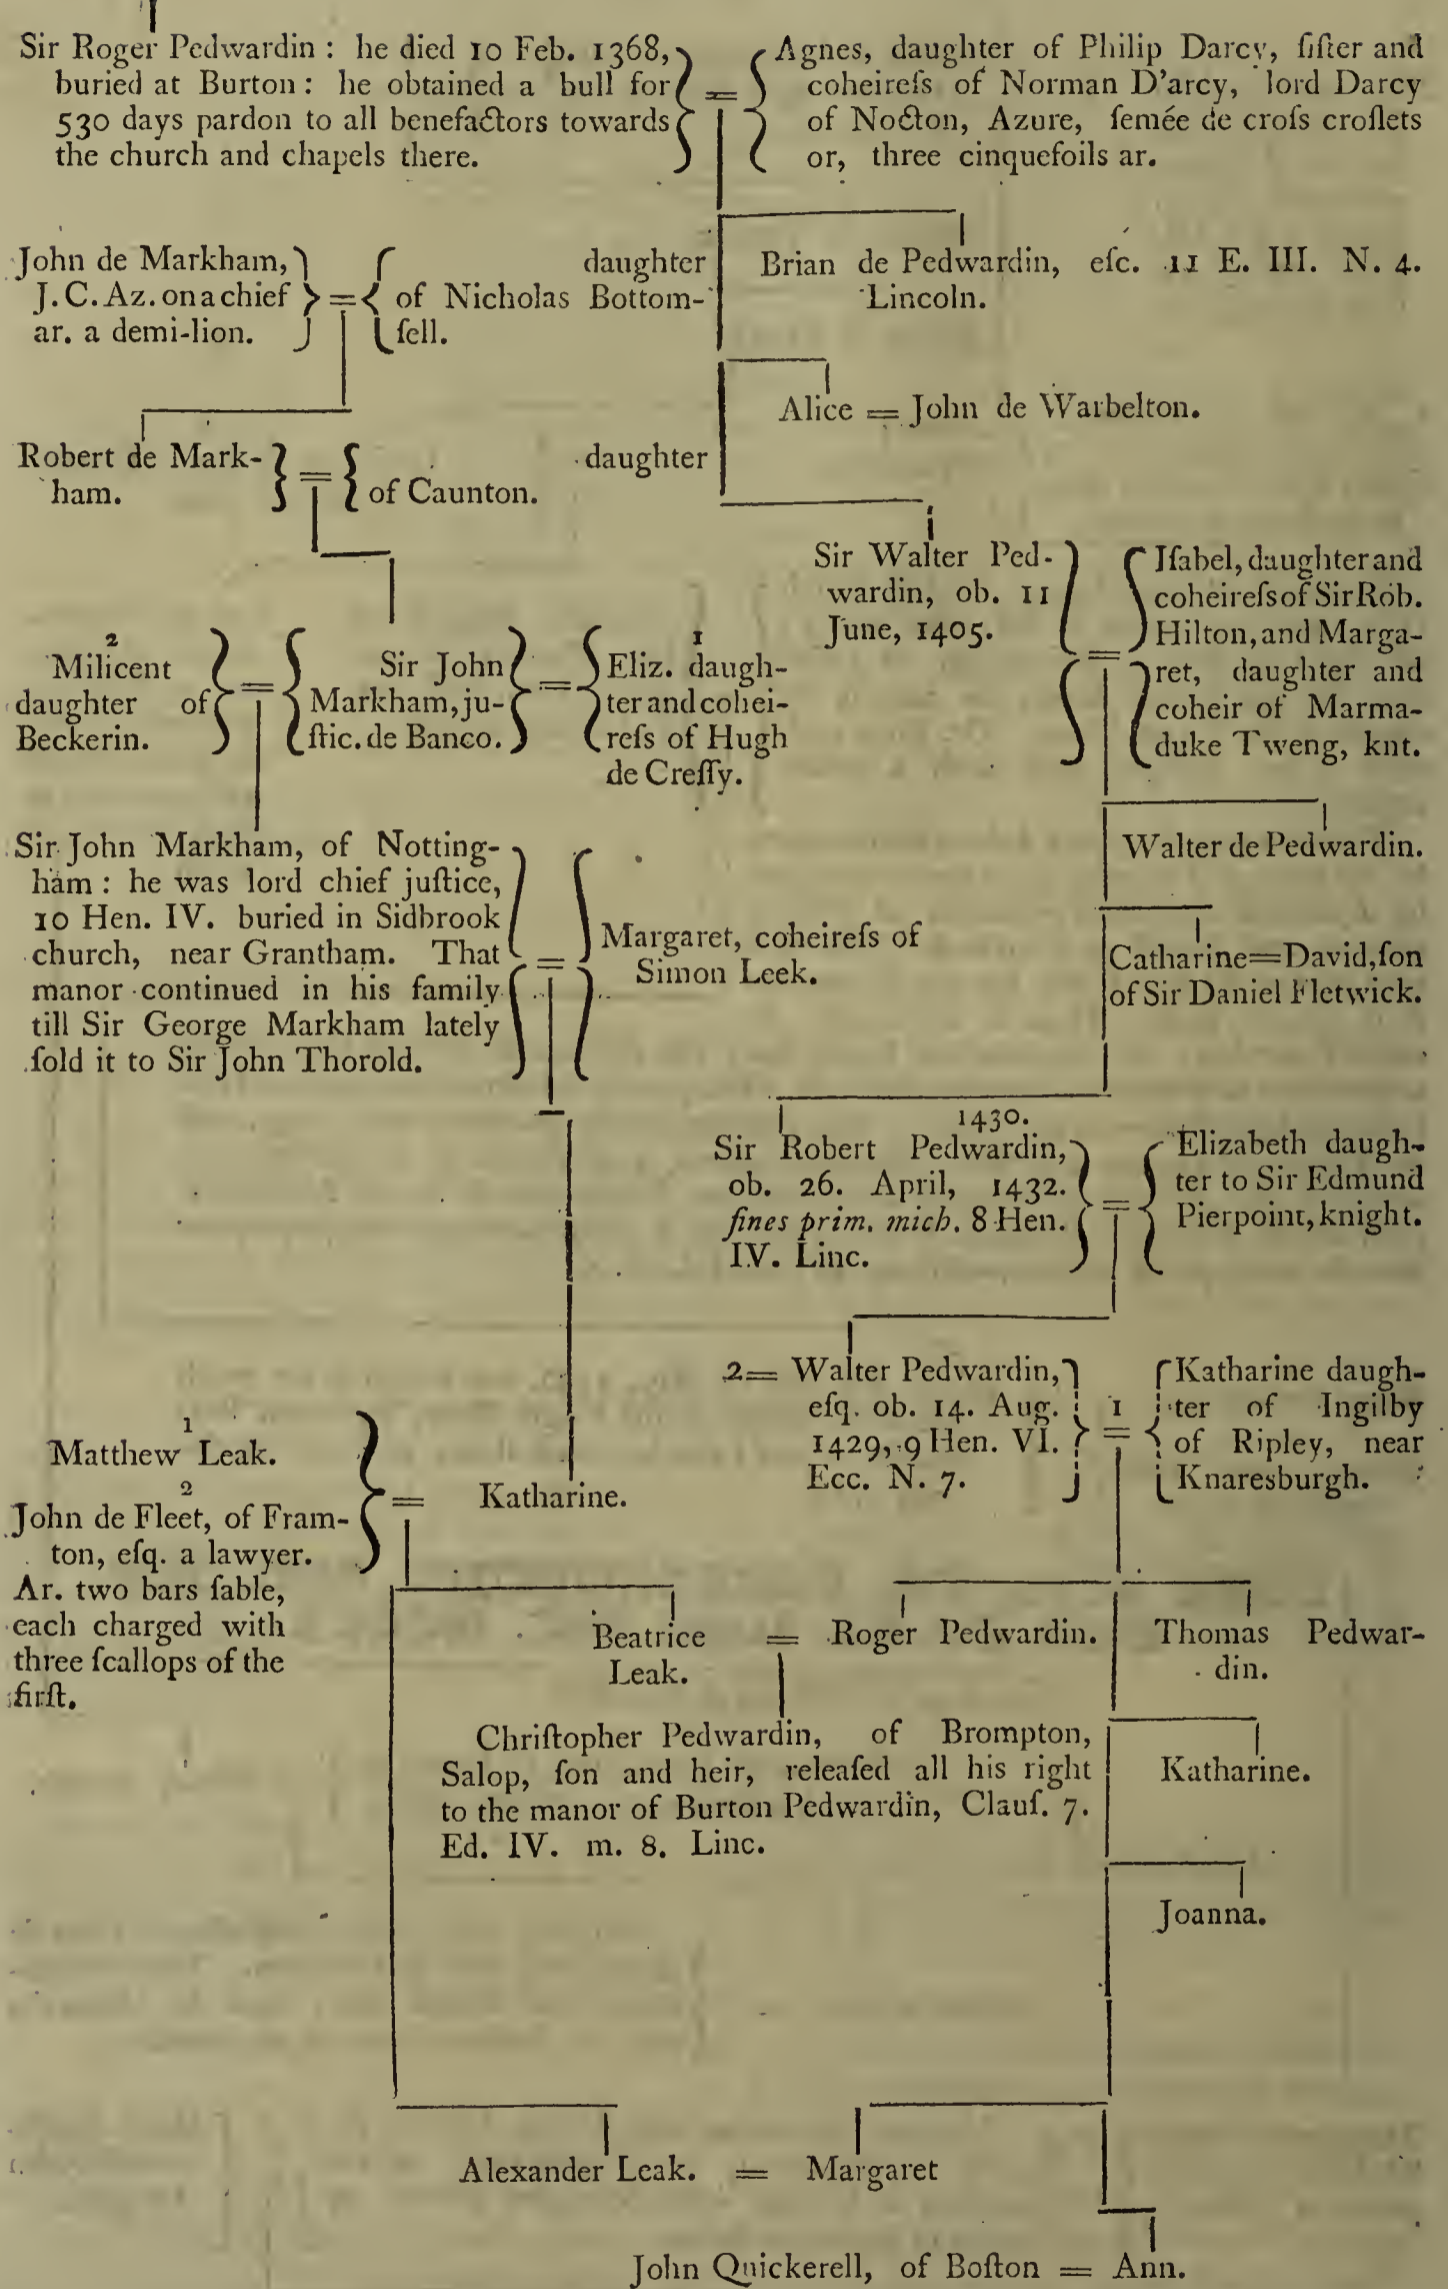 Sir Roger Pedwardin : he died 10 Feb. 1368,
buried at Burton : he obtained a bull for
530 days pardon to all benefactors towards
the church and chapels there.
=
Agnes, daughter of Philip Darcy, ſiſter and
coheireſs of Norman D'arcy, lord Darcy
of Nocton, Azure, ſemée de croſs croſlets
or, three cinquefoils ar.
John de Markham,
J. C. Az. on a chief
ar. a demi-lion.
=
daughter
of Nicholas Bottom-
ſell.
Brian de Pedwardin, eſc. 11 E. III. N. 4.
Lincoln.
Alice = John de Warbelton.
Robert de Mark-
ham.
=
daughter
of Caunton.
Sir Walter Ped-
wardin, ob. 11
June, 1405.
=
Iſabel, daughter and
coheireſs of Sir Rob.
Hilton, and Marga-
ret, daughter and
coheir of Marma-
duke Tweng, knt.
2
Milicent
daughter of
Beckerin.
=
Sir John
Markham, ju-
ſtic. de Banco.
=
1
Eliz. daugh-
ter and cohei-
reſs of Hugh
de Creſſy.
Walter de Pedwardin.
Sir John Markham, of Notting-
ham : he was lord chief juſtice,
10 Hen. IV. buried in Sidbrook
church, near Grantham. That
manor continued in his family
till Sir George Markham lately
ſold it to Sir John Thorold.
=
Margaret, coheireſs of
Simon Leek.
Catharine=David, ſon
of Sir Daniel Fletwick.
1430.
Sir Robert Pedwardin,
ob. 26. April, 1432.
fines prim. mich. 8 Hen.
IV. Linc.
=
Elizabeth daugh-
ter to Sir Edmund
Pierpoint, knight.
2= Walter Pedwardin,
eſq. ob. 14. Aug.
1429, 9 Hen. VI.
Ecc. N. 7.
1
=
Katharine daugh-
ter of Ingilby
of Ripley, near
Knaresburgh.
1
Matthew Leak.
2
John de Fleet, of Fram-
ton, eſq. a lawyer.
Ar. two bars ſable,
each charged with
three ſcallops of the
firſt.
= Katharine.
Beatrice
Leak.
= Roger Pedwardin.
Thomas Pedwar-
din.
Chriſtopher Pedwardin, of Brompton,
Salop, ſon and heir, releaſed all his right
to the manor of Burton Pedwardin, Clauſ. 7.
Ed. IV. m. 8. Linc.
Katharine.
Joanna.
Alexander Leak. = Margaret
John Quickerell, of Boſton = Ann.